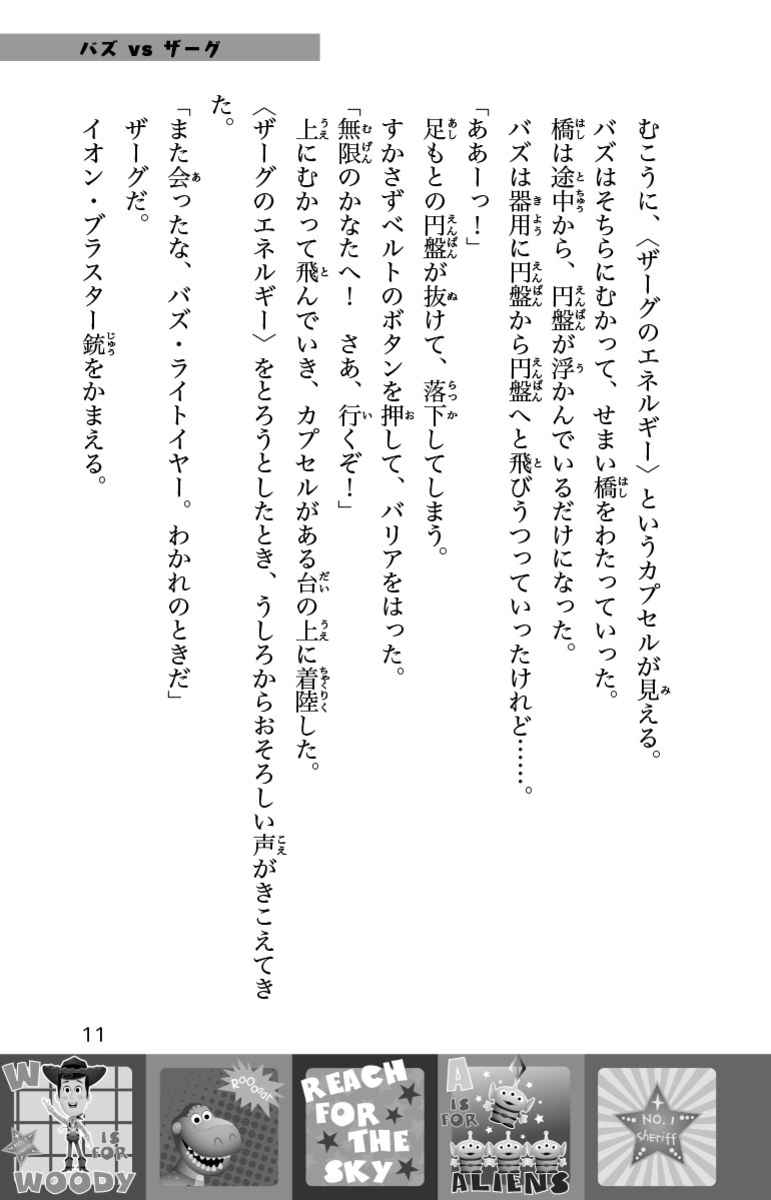 バズ vs ザーグ
むこうに、〈ザーグのエネルギー〉というカプセルが見える。
バズはそちらにむかって、せまい橋をわたっていった。
橋は途中から、円盤が浮かんでいるだけになった。
バズは器用に円盤から円盤へと飛びうつっていったけれど……。
「ああーっ！」
足もとの円盤が抜けて、落下してしまう。
すかさずベルトのボタンを押して、バリアをはった。
「無限のかなたへ！　さあ、行くぞ！」
上にむかって飛んでいき、カプセルがある台の上に着陸した。
〈ザーグのエネルギー〉をとろうとしたとき、うしろからおそろしい声がきこえてき
た。
「また会ったな、バズ・ライトイヤー。わかれのときだ」
ザーグだ。
イオン・ブラスター銃をかまえる。
11
W IS FOR WOODY
ROOOar!
REACH FOR THE SKY
A IS FOR ALIENS
NO. 1 sheriff